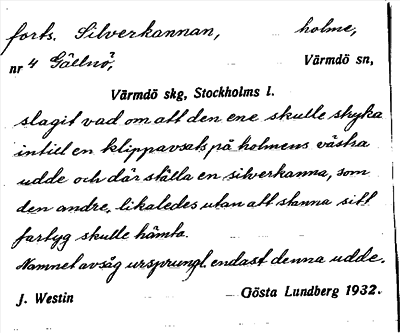 forts. Silverkannan, holme,
nr 4 Gällnö, Värmdö sn,
Värmdö skg, Stockholms l.
slagit vad om att den ene skulle stryka
intill en klippavsats på holmens västra
udde och där ställa en silverkanna, som
den andre, likaledes utan att stanna sitt
fartyg skulle hämta.
Namnet avsåg ursprungl. endast denna udde.
J. Westin Gösta Lundberg 1932.